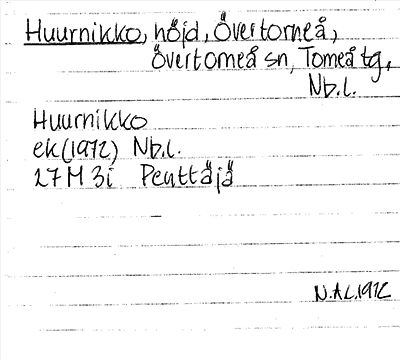 Huurnikko, höjd, Övertorneå,
Övertorneå sn, Torneå tg,
Nb.l.
Huurnikko
ek (1972) Nb.l.
27 M 3i Penttäjä
N.Å.L. 1972